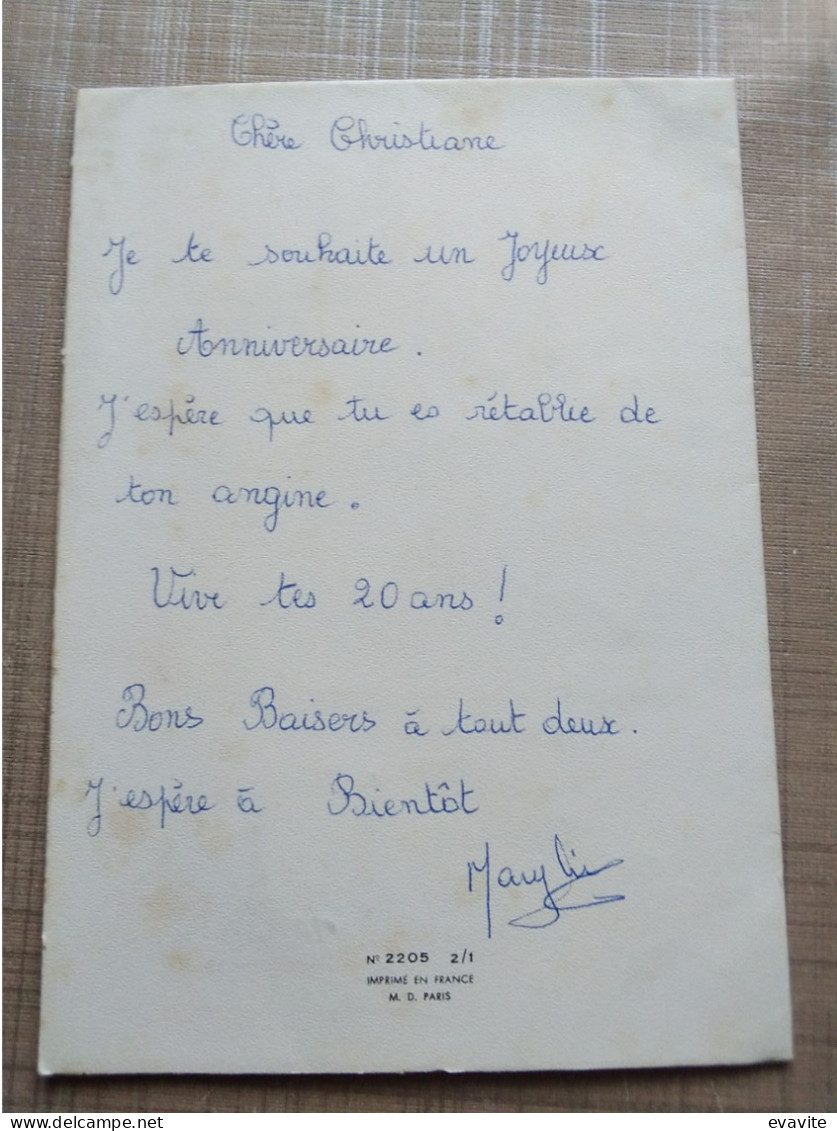 Chère Christiane
Je te souhaite un Joyeux
Anniversaire.
J'espère que tu es rétablie de
ton angine.
Vive tes 20 ans !
Bons Baisers à tout deux.
J'espère à Bientôt
Marylis
N° 2205 2/1
IMPRIMÉ EN FRANCE
M. D. PARIS
evavite